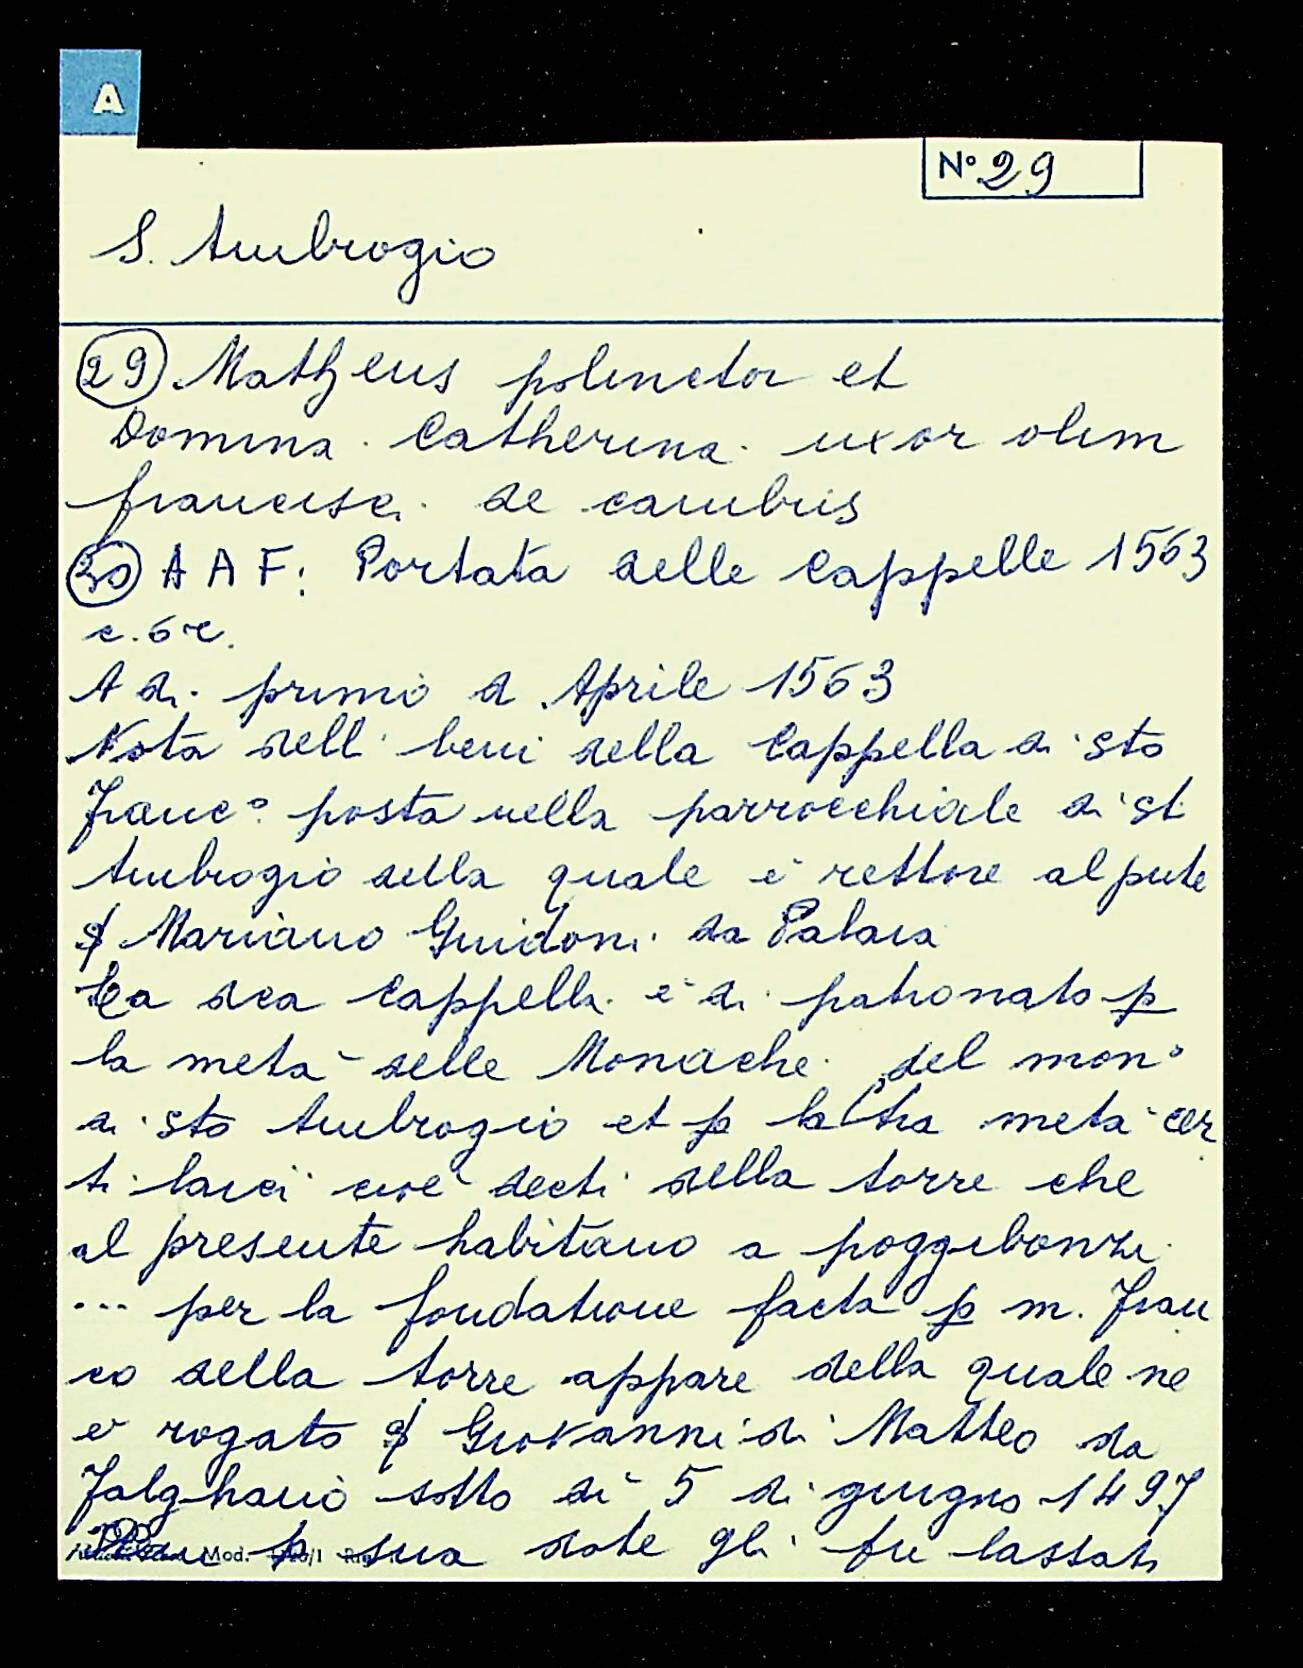 A
N° 29
S. Ambrogio
29 Matheus polinctor et
Domina Catherina uxor olim
francisci de cambris
30 A A F: Portata delle Cappelle 1563
c. 6 r.
A di primo d Aprile 1563
Nota dell beni della Cappella di sto
Franc° posta nella parrocchiale di st
Ambrogio della quale è rettore al pnte
Mariano Guidoni da Palaia
La dca Cappella è di patronato p
la metà delle Monache del mon°
di sto Ambrogio et p laltra metà cer
ti laici cioè decti della torre che
al presente habitano a poggibonzi
... per la fondatione facta p m. Fran
co della torre appare della quale ne
e rogato Giovanni di Matteo da
Falghano sotto di 5 di giugno 1497
p sua dote gli fu lassati
Mod.